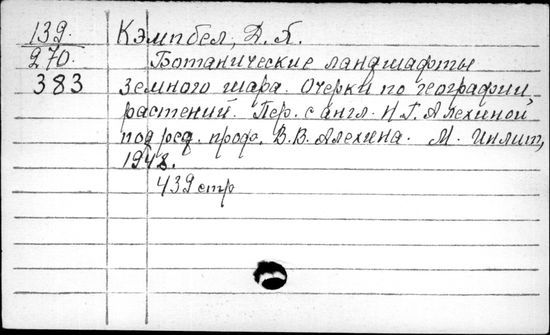 139. Кэмпбел, Д. П.
270. Ботанические ландшафты
383 земного шара. Очерки по географии
растений. Пер. с англ. Н. Г. Алехиной,
под ред. проф. В. В. Алехина. М. Инлит,
1948.
439 стр